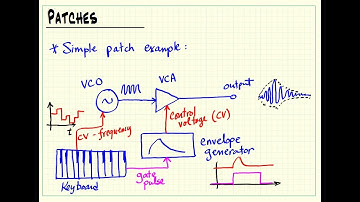 PATCHES
* Simple patch example:
VCO
VCA
output
t
CV - frequency
control
voltage (CV)
envelope
generator
Keyboard
gate
pulse